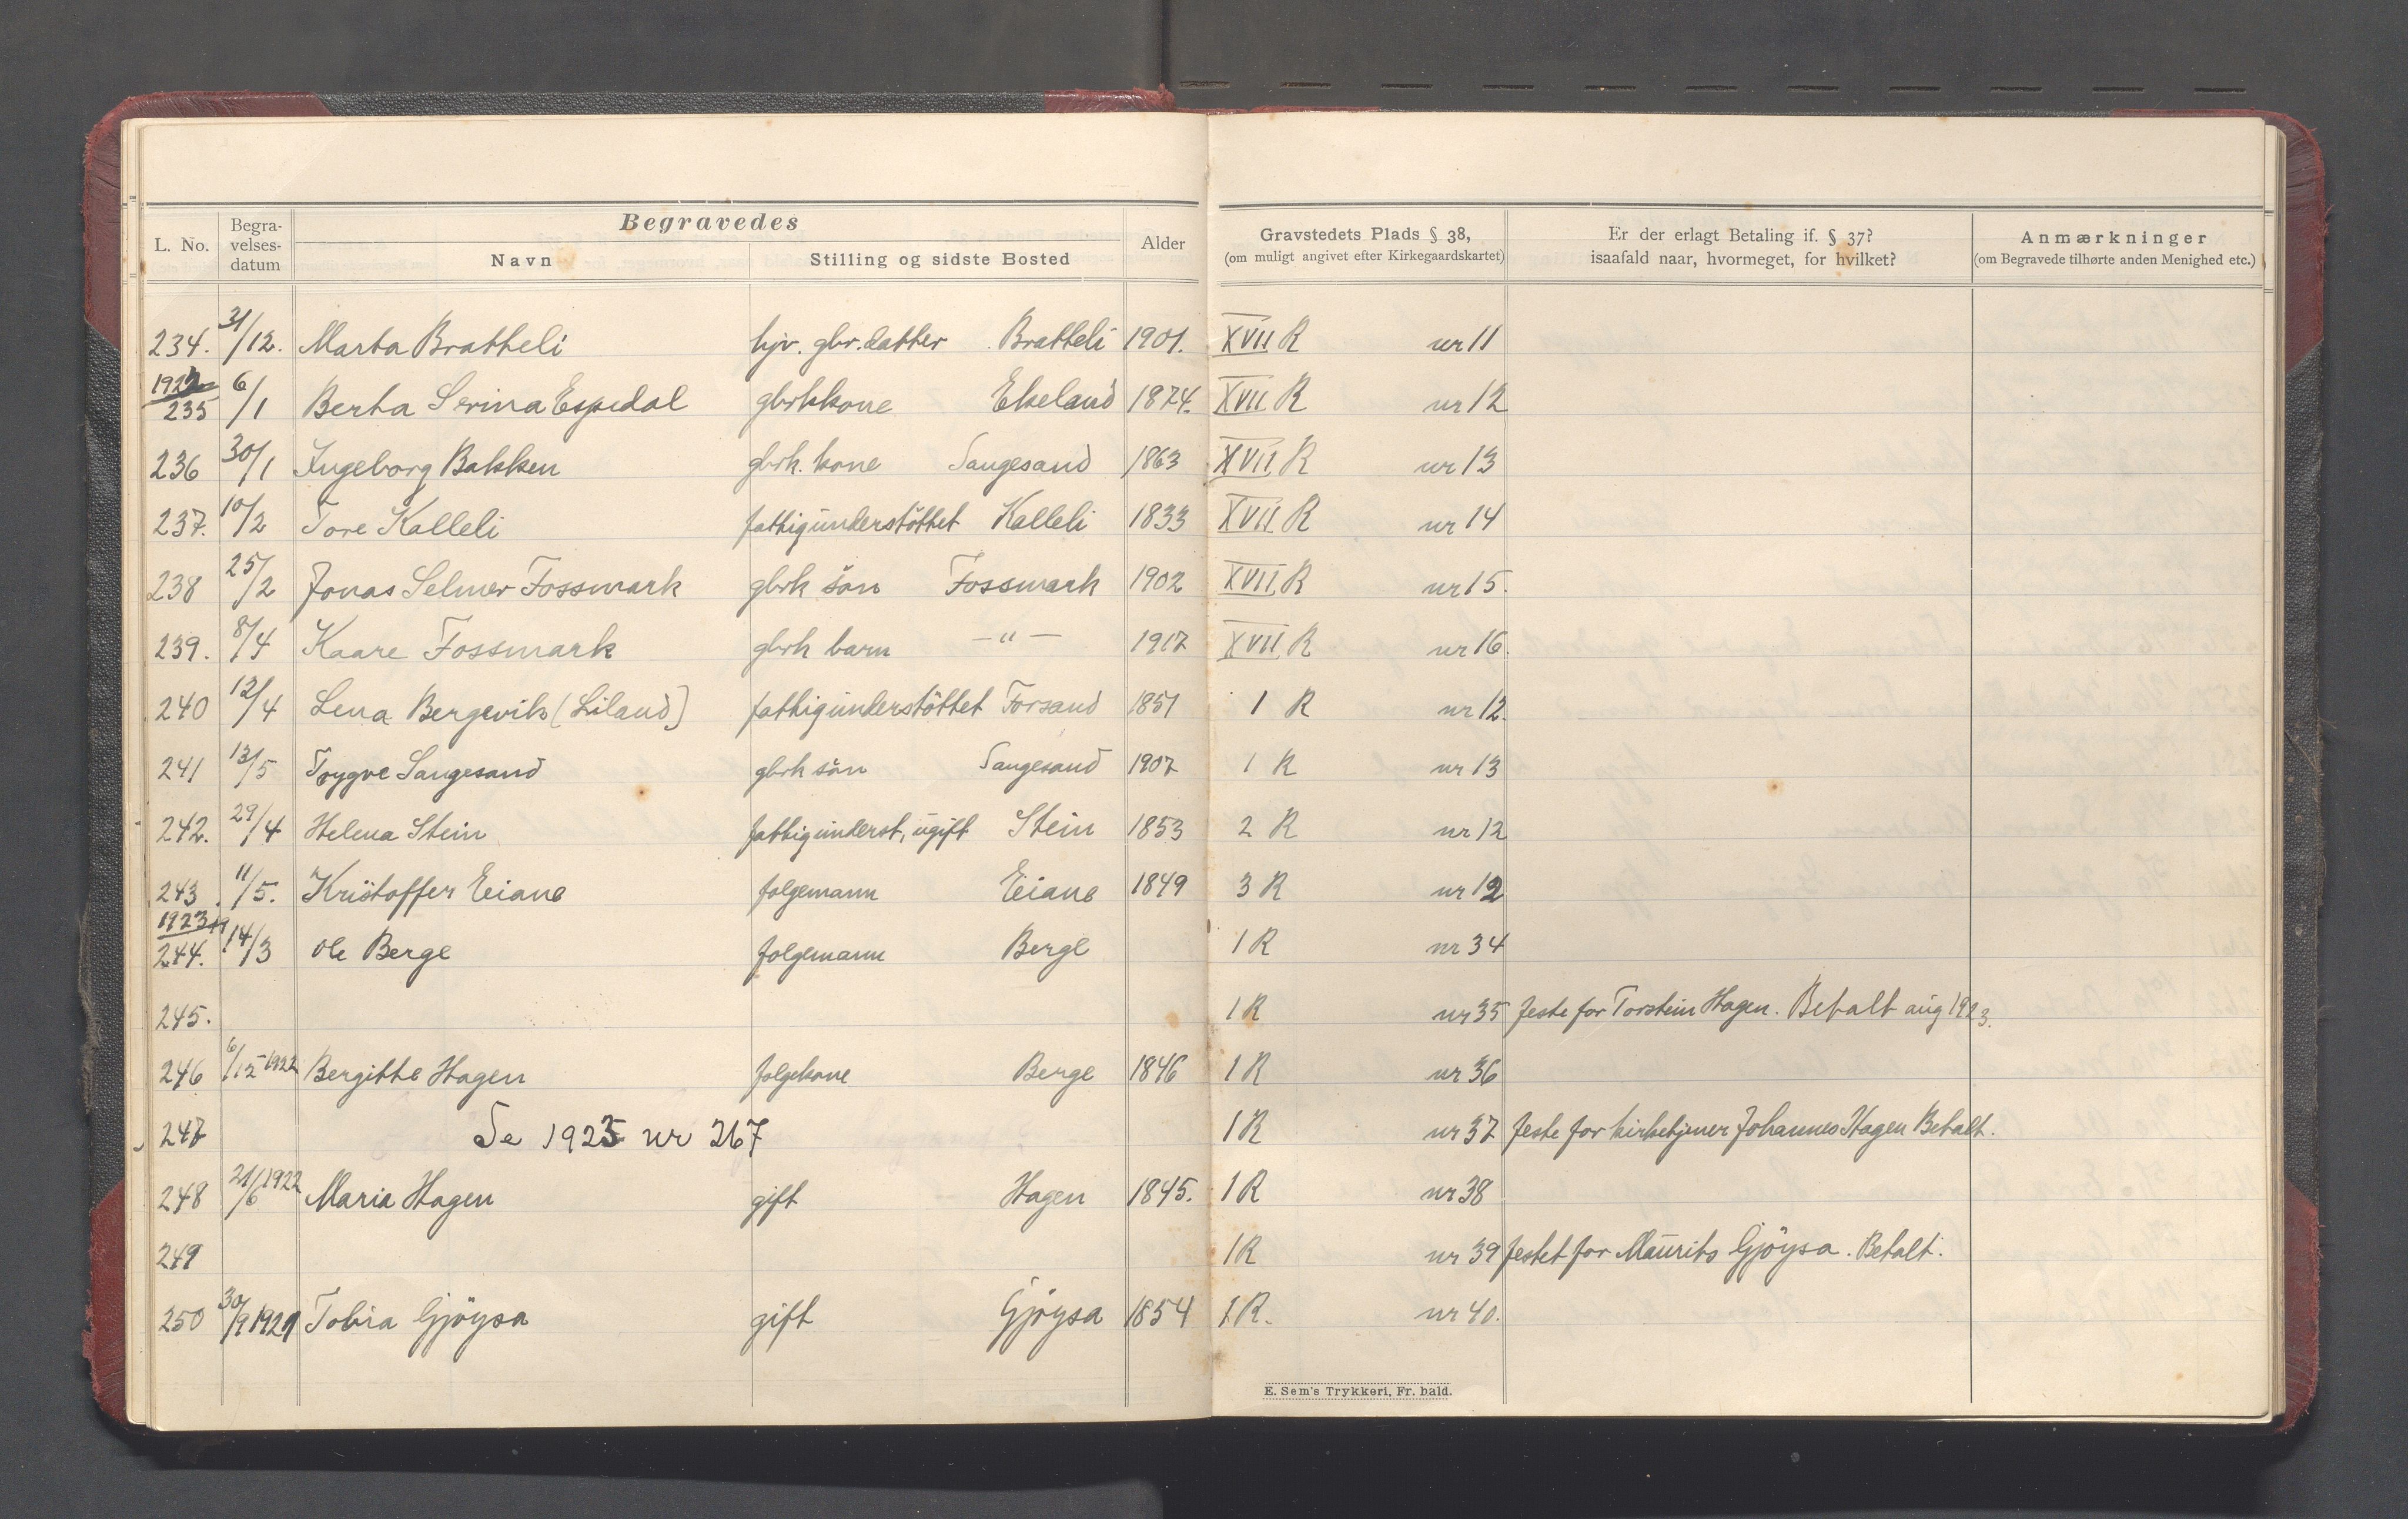 Begravedes
L. No. Begra-velses-datum Navn Stilling og sidste Bosted Alder Gravstedets Plads § 38, (om muligt angivet efter Kirkegaardskartet) Er der erlagt Betaling if. § 37? isaafald naar, hvormeget, for hvilket? Anmærkninger (om Begravede tilhørte anden Menighed etc.)
234. 31/12. Marta Bratteli hjv. gbr.datter Bratteli 1901. XVII R nr 11
1922
235 6/1 Berta Serina Espedal gbrkkone Ekeland 1874. XVII R nr 12
236 30/1 Ingeborg Bakken gbrk. kone Sangesand 1863 XVII R nr 13
237. 10/2 Tore Kalleli fattigunderstöttet Kalleli 1833 XVII R nr 14
238 25/2 Jonas Selmer Fossmark gbrk sön Fossmark 1902 XVII R nr 15.
239. 8/4 Kaare Fossmark gbrk barn -"- 1917 XVII R nr 16.
240 12/4 Lena Bergevik (Liland) fattigunderstöttet Forsand 1851 1 R nr 12.
241 13/5 Trygve Sangesand gbrk sön Sangesand 1907 1 R nr 13
242. 29/4 Helena Stein fattigunderst, ugift Stein 1853 2 R nr 12
243 11/5. Kristoffer Eiane folgemann Eiane 1849 3 R nr 12
1923
244. 14/3 Ole Berge folgemann Berge 1 R nr 34
245. 1 R nr 35 feste for Torstein Hagen. Betalt aug 1923.
246 6/12 1922 Bergitte Hagen folgekone Berge 1846 1 R nr 36
247 Se 1925 nr 267 1 R nr 37 feste for kirketjener Johannes Hagen Betalt.
248 21/6 1922 Maria Hagen gift Hagen 1845. 1 R nr 38
249 1 R nr 39 festet for Maurits Gjöysa. Betalt.
250 30/9 1921 Tobia Gjöysa gift Gjöysa 1854 1 R. nr 40.
E. Sem's Trykkeri, Fr. hald.